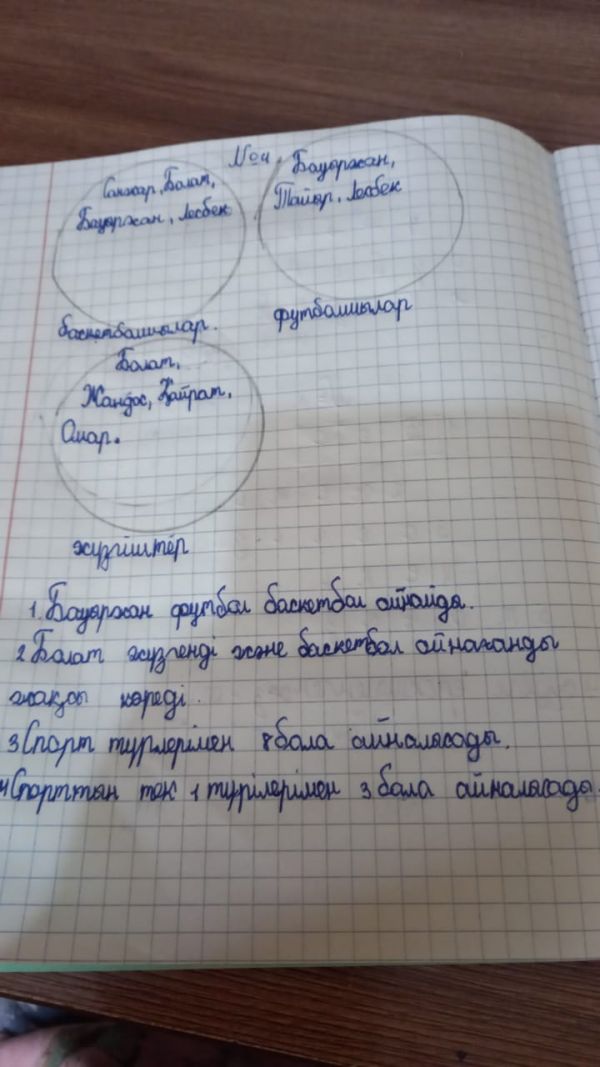 №4.
Санжар, Болат,
Бауыржан, Лесбек
баскетбалшылар.
Бауыржан,
Тайыр, Лесбек
футболшылар
Болат,
Жандос, Қайрат,
Омар.
жүзгіштер
1. Бауыржан футбол баскетбол ойнайды.
2 Болат жүзгенді және баскетбол ойнағанды
жақсы көреді.
3 Спорт түрлерімен 8 бала айналысады.
4 Спорттың тек 1 түрілерімен 3 бала айналысады.